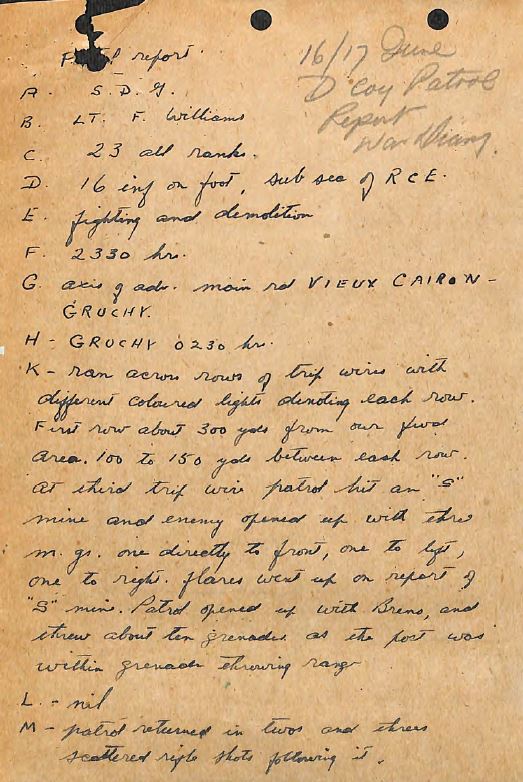 Patrol report.
16/17 June
D coy Patrol
Report
War Diary
A. S.D.G.
B. LT. F. Williams
C. 23 all ranks.
D. 16 inf on foot, sub sec of RCE.
E. fighting and demolition
F. 2330 hrs.
G. axis of adv. main rd VIEUX CAIRON -
GRUCHY.
H - GRUCHY 0230 hr.
K - ran across rows of trip wires with
different coloured lights denoting each row.
First row about 300 yds from our fwd
area. 100 to 150 yds between each row.
At third trip wire patrol hit an "S"
mine and enemy opened up with three
m.gs. one directly to front, one to left,
one to right. flares went up on report of
"S" mine. Patrol opened up with Brens, and
threw about ten grenades as the post was
within grenade throwing range
L. - nil
M - patrol returned in twos and threes
scattered rifle shots following it.